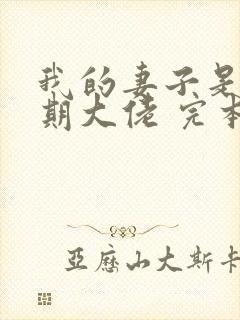 我的妻子是
期大佬 完本
亞歷山大斯卡